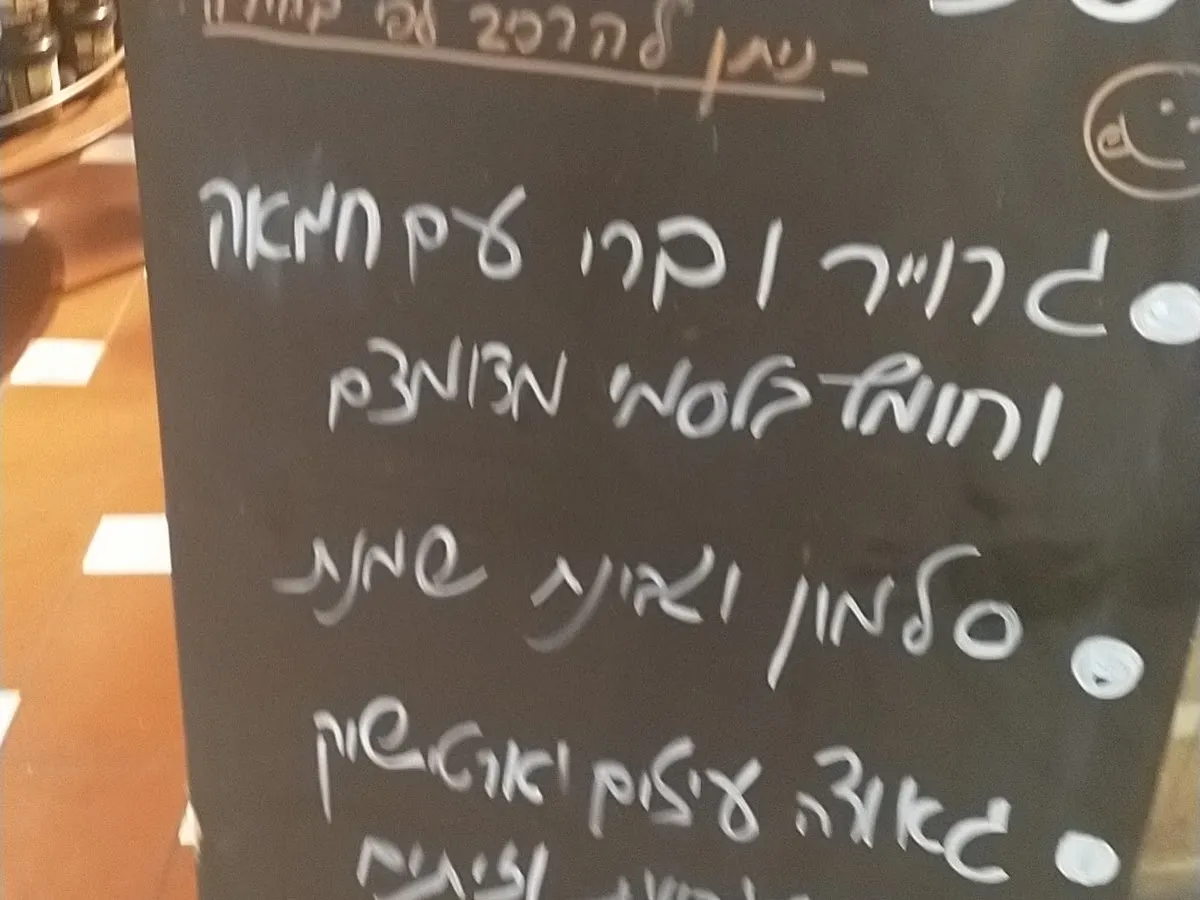 - ניתן להרכיב לפי
גרוייר וברי עם חמאה
וחומץ בלסמי מצומצם
סלמון וגבינת שמנת
גאודה עיזים וארטישוק
וזיתים